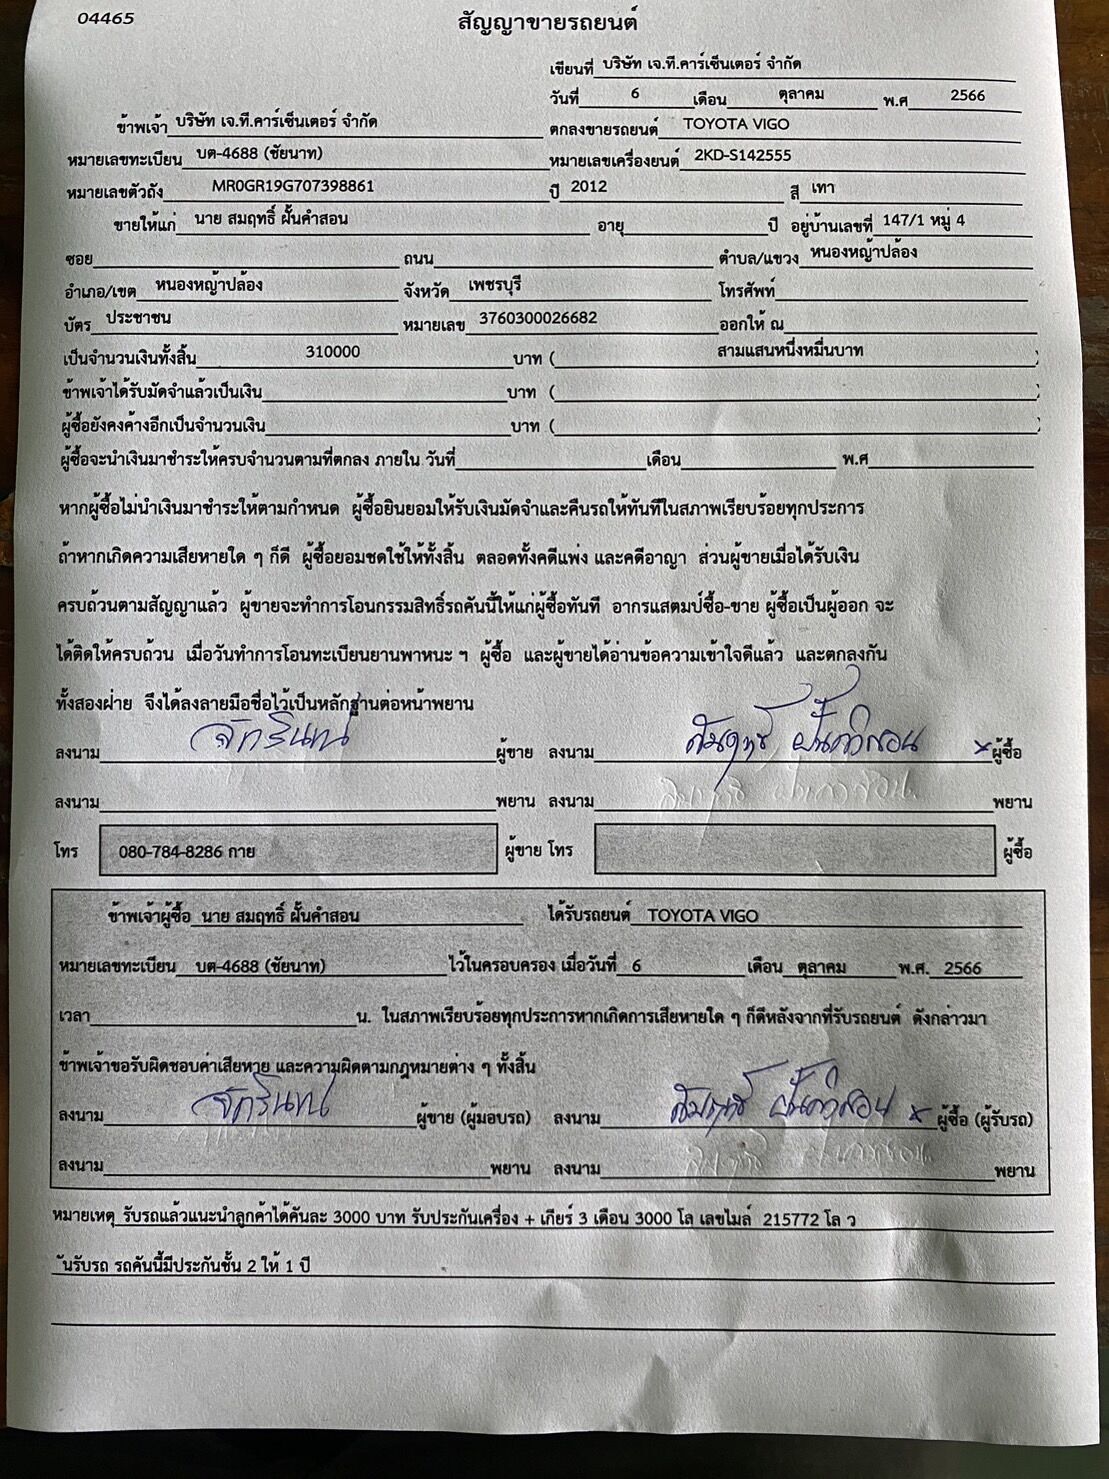 04465
สัญญาขายรถยนต์
เขียนที่ บริษัท เจ.ที.คาร์เซ็นเตอร์ จำกัด
วันที่ 6 เดือน ตุลาคม พ.ศ 2566
ข้าพเจ้า บริษัท เจ.ที.คาร์เซ็นเตอร์ จำกัด ตกลงขายรถยนต์ TOYOTA VIGO
หมายเลขทะเบียน บต-4688 (ชัยนาท) หมายเลขเครื่องยนต์ 2KD-S142555
หมายเลขตัวถัง MR0GR19G707398861 ปี 2012 สี เทา
ขายให้แก่ นาย สมฤทธิ์ ฝั้นคำสอน อายุ ปี อยู่บ้านเลขที่ 147/1 หมู่ 4
ซอย ถนน ตำบล/แขวง หนองหญ้าปล้อง
อำเภอ/เขต หนองหญ้าปล้อง จังหวัด เพชรบุรี โทรศัพท์
บัตร ประชาชน หมายเลข 3760300026682 ออกให้ ณ
เป็นจำนวนเงินทั้งสิ้น 310000 บาท ( สามแสนหนึ่งหมื่นบาท )
ข้าพเจ้าได้รับมัดจำแล้วเป็นเงิน บาท ( )
ผู้ซื้อยังคงค้างอีกเป็นจำนวนเงิน บาท ( )
ผู้ซื้อจะนำเงินมาชำระให้ครบจำนวนตามที่ตกลง ภายใน วันที่ เดือน พ.ศ
หากผู้ซื้อไม่นำเงินมาชำระให้ตามกำหนด ผู้ซื้อยินยอมให้รับเงินมัดจำและคืนรถให้ทันทีในสภาพเรียบร้อยทุกประการ
ถ้าหากเกิดความเสียหายใด ๆ ก็ดี ผู้ซื้อยอมชดใช้ให้ทั้งสิ้น ตลอดทั้งคดีแพ่ง และคดีอาญา ส่วนผู้ขายเมื่อได้รับเงิน
ครบถ้วนตามสัญญาแล้ว ผู้ขายจะทำการโอนกรรมสิทธิ์รถคันนี้ให้แก่ผู้ซื้อทันที อากรแสตมป์ซื้อ-ขาย ผู้ซื้อเป็นผู้ออก จะ
ได้ติดให้ครบถ้วน เมื่อวันทำการโอนทะเบียนยานพาหนะ ฯ ผู้ซื้อ และผู้ขายได้อ่านข้อความเข้าใจดีแล้ว และตกลงกัน
ทั้งสองฝ่าย จึงได้ลงลายมือชื่อไว้เป็นหลักฐานต่อหน้าพยาน
ลงนาม จักรินทน์ ผู้ขาย ลงนาม สมฤทธิ์ ฝั้นคำสอน x ผู้ซื้อ
ลงนาม พยาน ลงนาม พยาน
โทร 080-784-8286 กาย ผู้ขาย โทร ผู้ซื้อ
ข้าพเจ้าผู้ซื้อ นาย สมฤทธิ์ ฝั้นคำสอน ได้รับรถยนต์ TOYOTA VIGO
หมายเลขทะเบียน บต-4688 (ชัยนาท) ไว้ในครอบครอง เมื่อวันที่ 6 เดือน ตุลาคม พ.ศ. 2566
เวลา น. ในสภาพเรียบร้อยทุกประการหากเกิดการเสียหายใด ๆ ก็ดีหลังจากที่รับรถยนต์ ดังกล่าวมา
ข้าพเจ้าขอรับผิดชอบค่าเสียหาย และความผิดตามกฎหมายต่าง ๆ ทั้งสิ้น
ลงนาม จักรินทน์ ผู้ขาย (ผู้มอบรถ) ลงนาม สมฤทธิ์ ฝั้นคำสอน x ผู้ซื้อ (ผู้รับรถ)
ลงนาม พยาน ลงนาม พยาน
หมายเหตุ รับรถแล้วแนะนำลูกค้าได้คันละ 3000 บาท รับประกันเครื่อง + เกียร์ 3 เดือน 3000 โล เลขไมล์ 215772 โล ว
ันรับรถ รถคันนี้มีประกันชั้น 2 ให้ 1 ปี